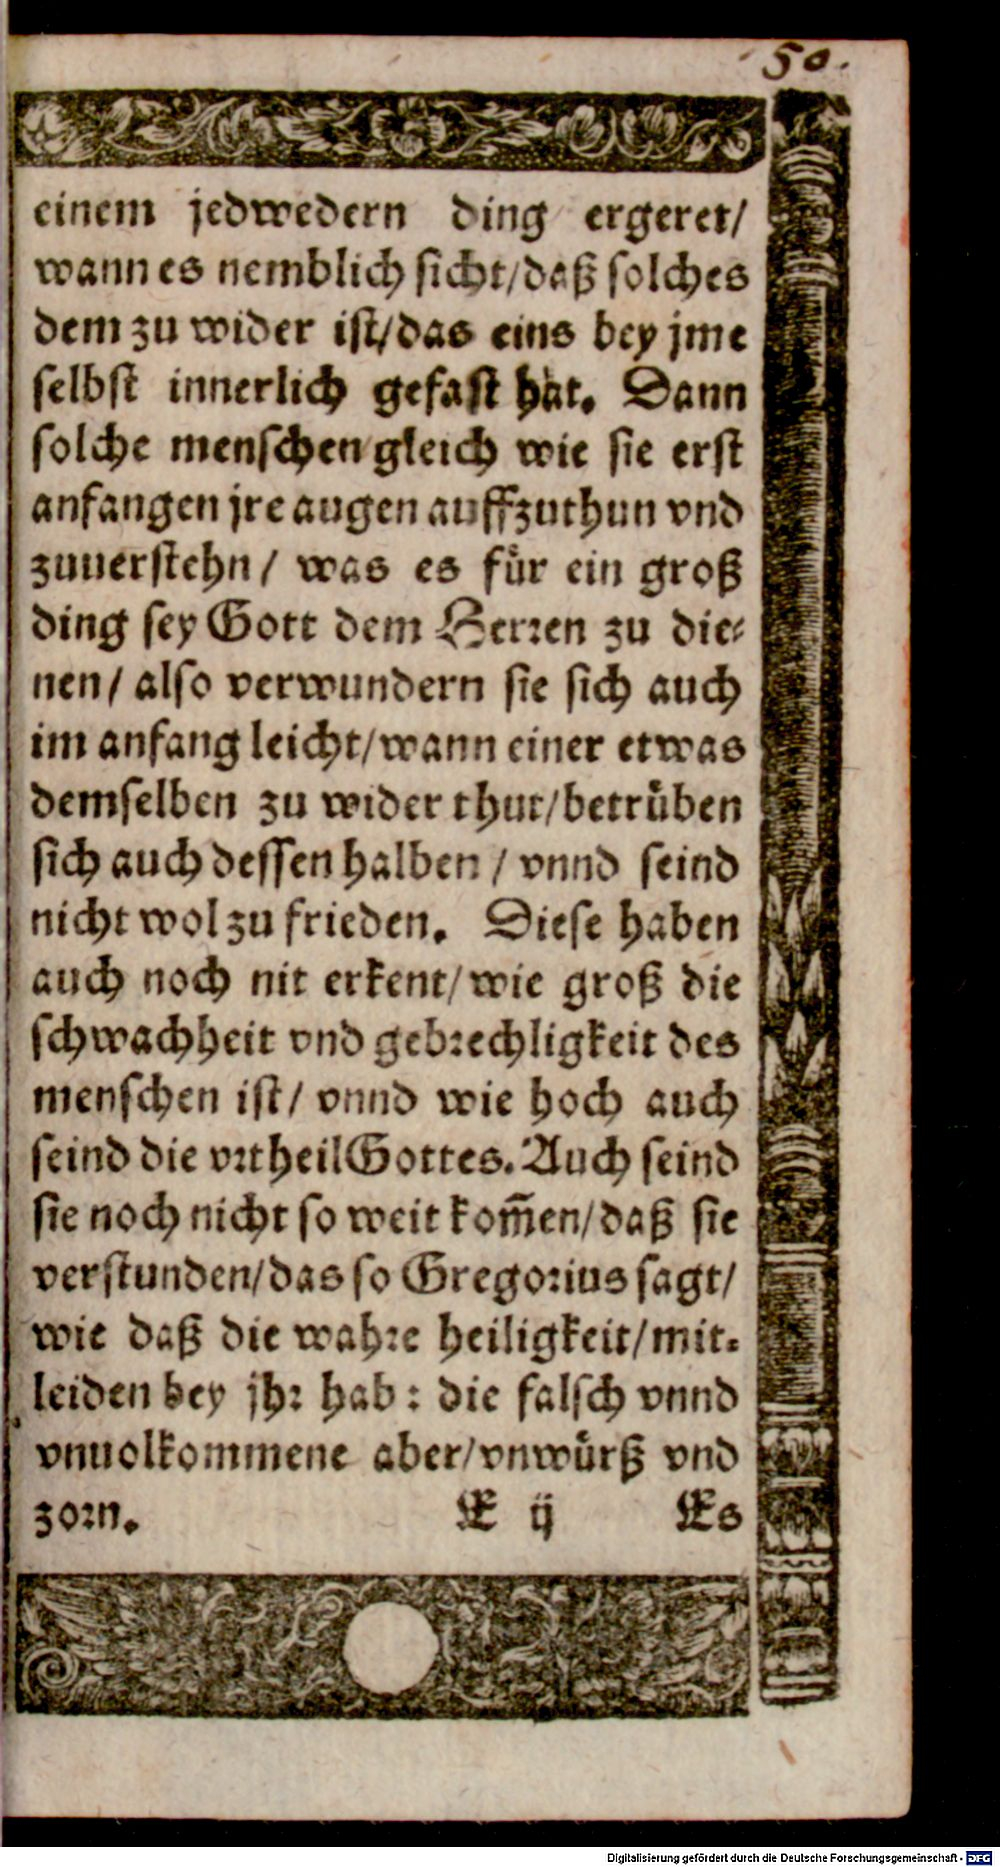 50.
einem jedwedern ding ergeret/
wann es nemblich sicht/daß solches
dem zu wider ist/das eins bey jme
selbst innerlich gefast hat. Dann
solche menschen gleich wie sie erst
anfangen jre augen auffzuthun vnd
zuuerstehn/ was es für ein groß
ding sey Gott dem Herren zu die⸗
nen/ also verwundern sie sich auch
im anfang leicht/wann einer etwas
demselben zu wider thut/betrüben
sich auch dessen halben / vnnd seind
nicht wol zu frieden. Diese haben
auch noch nit erkent/wie groß die
schwachheit vnd gebrechligkeit des
menschen ist/ vnnd wie hoch auch
seind die vrtheil Gottes. Auch seind
sie noch nicht so weit kom̅en/daß sie
verstunden/das so Gregorius sagt/
wie daß die wahre heiligkeit/mit⸗
leiden bey jhr hab: die falsch vnnd
vnuolkommene aber/vnwürß vnd
zorn. E ij Es
Digitalisierung gefördert durch die Deutsche Forschungsgemeinschaft - DFG